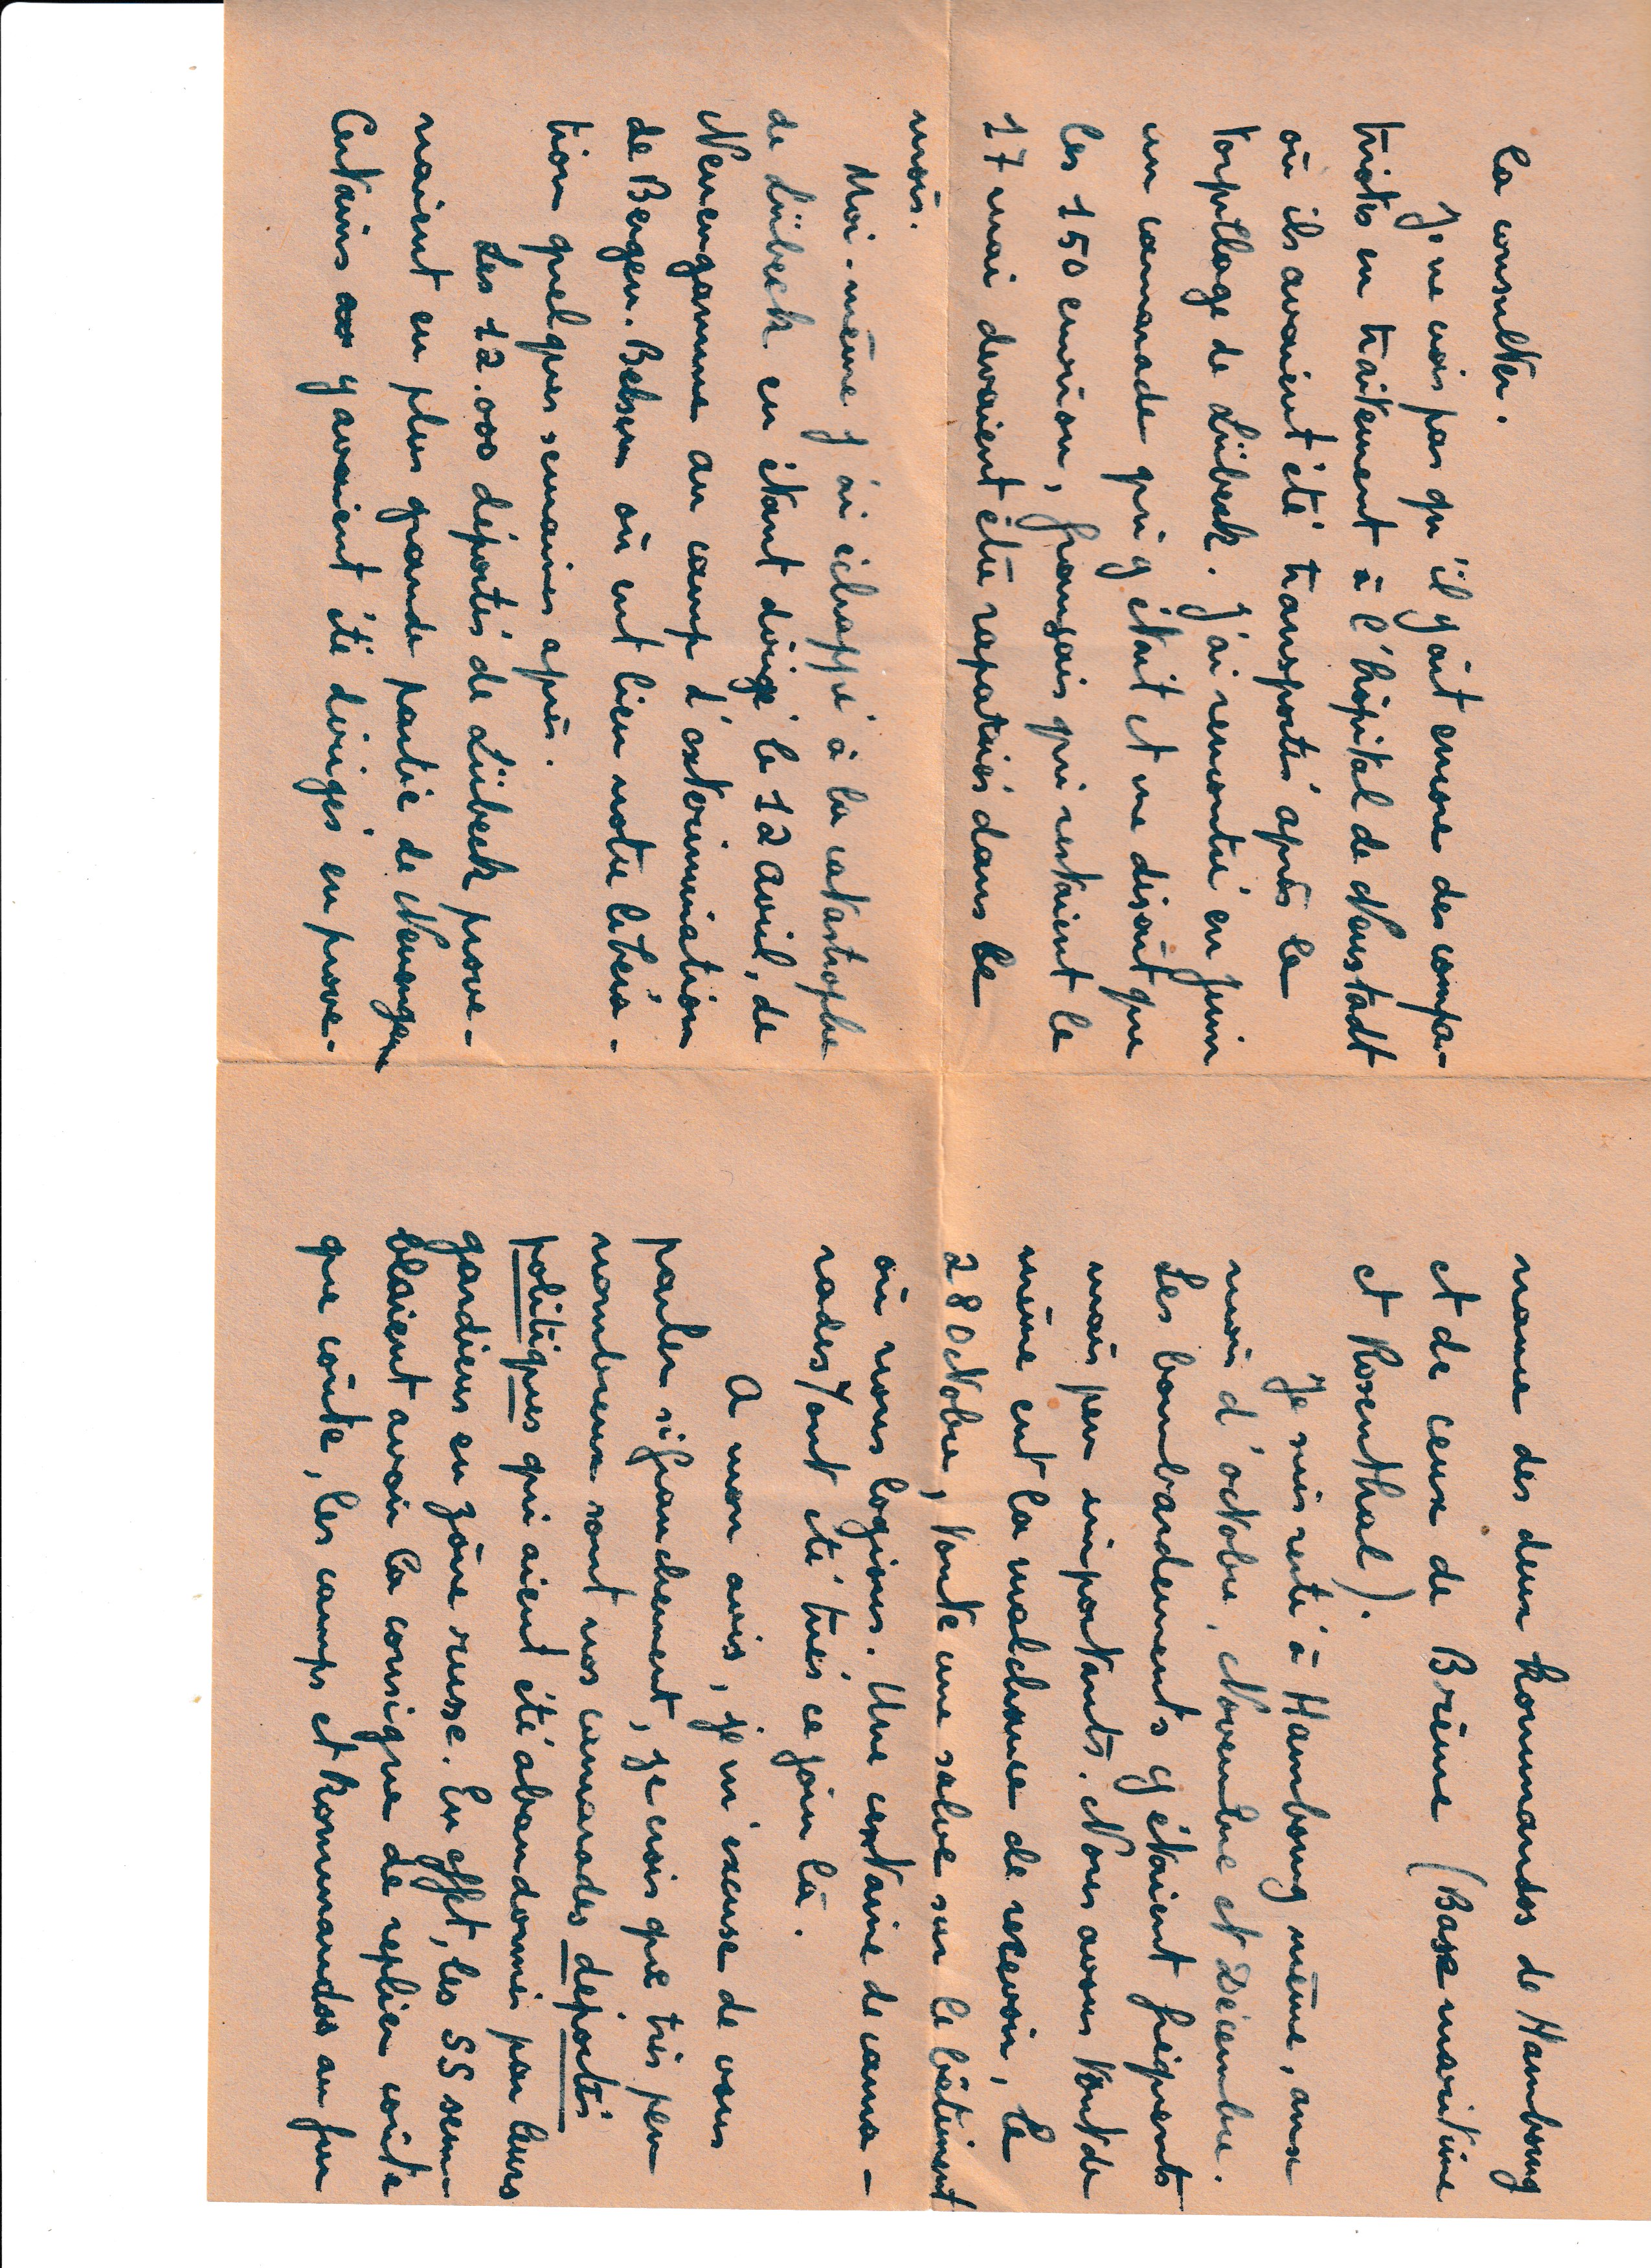 la consulter.
Je ne crois pas qu'il y ait encore des compa-
triotes en traitement à l'hôpital de Neustadt
où ils avaient été transportés après le
torpillage de Lübeck. J'ai rencontré en Juin
un camarade qui y était et me disait que
les 150 environ, français qui restaient le
17 mai devaient être rapatriés dans le
mois.
Moi-même j'ai échappé à la catastrophe
de Lübeck en étant dirigé le 12 avril, de
Neuengamme au camp d'extermination
de Bergen-Belsen où eut lieu notre libéra-
tion quelques semaines après.
Les 12.000 déportés de Lübeck prove-
naient en plus grande partie de Neuengam
Certains y avaient été dirigés en prove-
nance des deux Kommandos de Hambourg
et de ceux de Brême (Base maritime
et Rosenthal).
Je suis resté à Hambourg même, aux
mois d'octobre, Novembre et Décembre.
Les bombardements y étaient fréquents
mais peu importants. Nous avons tout de
même eut la malchance de recevoir, le
28 Octobre, toute une salve sur le bâtiment
où nous logions. Une centaine de cama-
rades y ont été tués ce jour là.
A mon avis, je m'excuse de vous
parler si franchement, je crois que très peu
nombreux sont nos camarades déportés
politiques qui aient été abandonnés par leurs
gardiens en zône russe. En effet, les SS sem-
blaient avoir la consigne de replier coûte
que coûte, les camps et Kommandos au fur